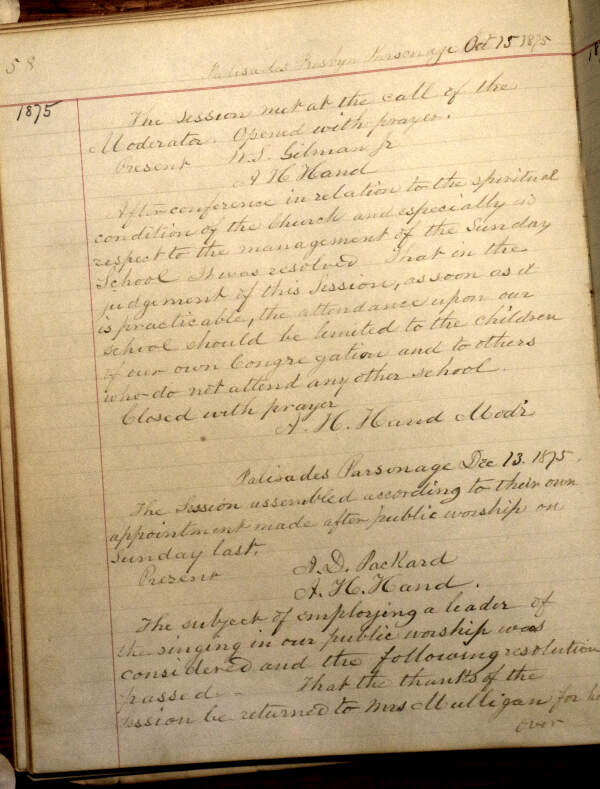 58
Palisades Presbyn Parsonage Oct 15 1875
1875
The Session met at the call of the
Moderator. Opened with prayer.
Present W.S. Gilman Jr
A H Hand
After conference in relation to the spiritual
condition of the Church and especially in
respect to the management of the Sunday
School It was resolved That in the
judgement of this Session, as soon as it
is practicable, the attendance upon our
school should be limited to the children
of our own Congregation and to others
who do not attend any other school.
Closed with prayer
A. H. Hand Modr
Palisades Parsonage Dec 13. 1875.
The Session assembled according to their own
appointment made after public worship on
Sunday last.
Present A. D. Packard
A. H. Hand.
The subject of employing a leader of
the singing in our public worship was
considered and the following resolution
passed - That the thanks of the
session be returned to Mrs Mulligan for
over